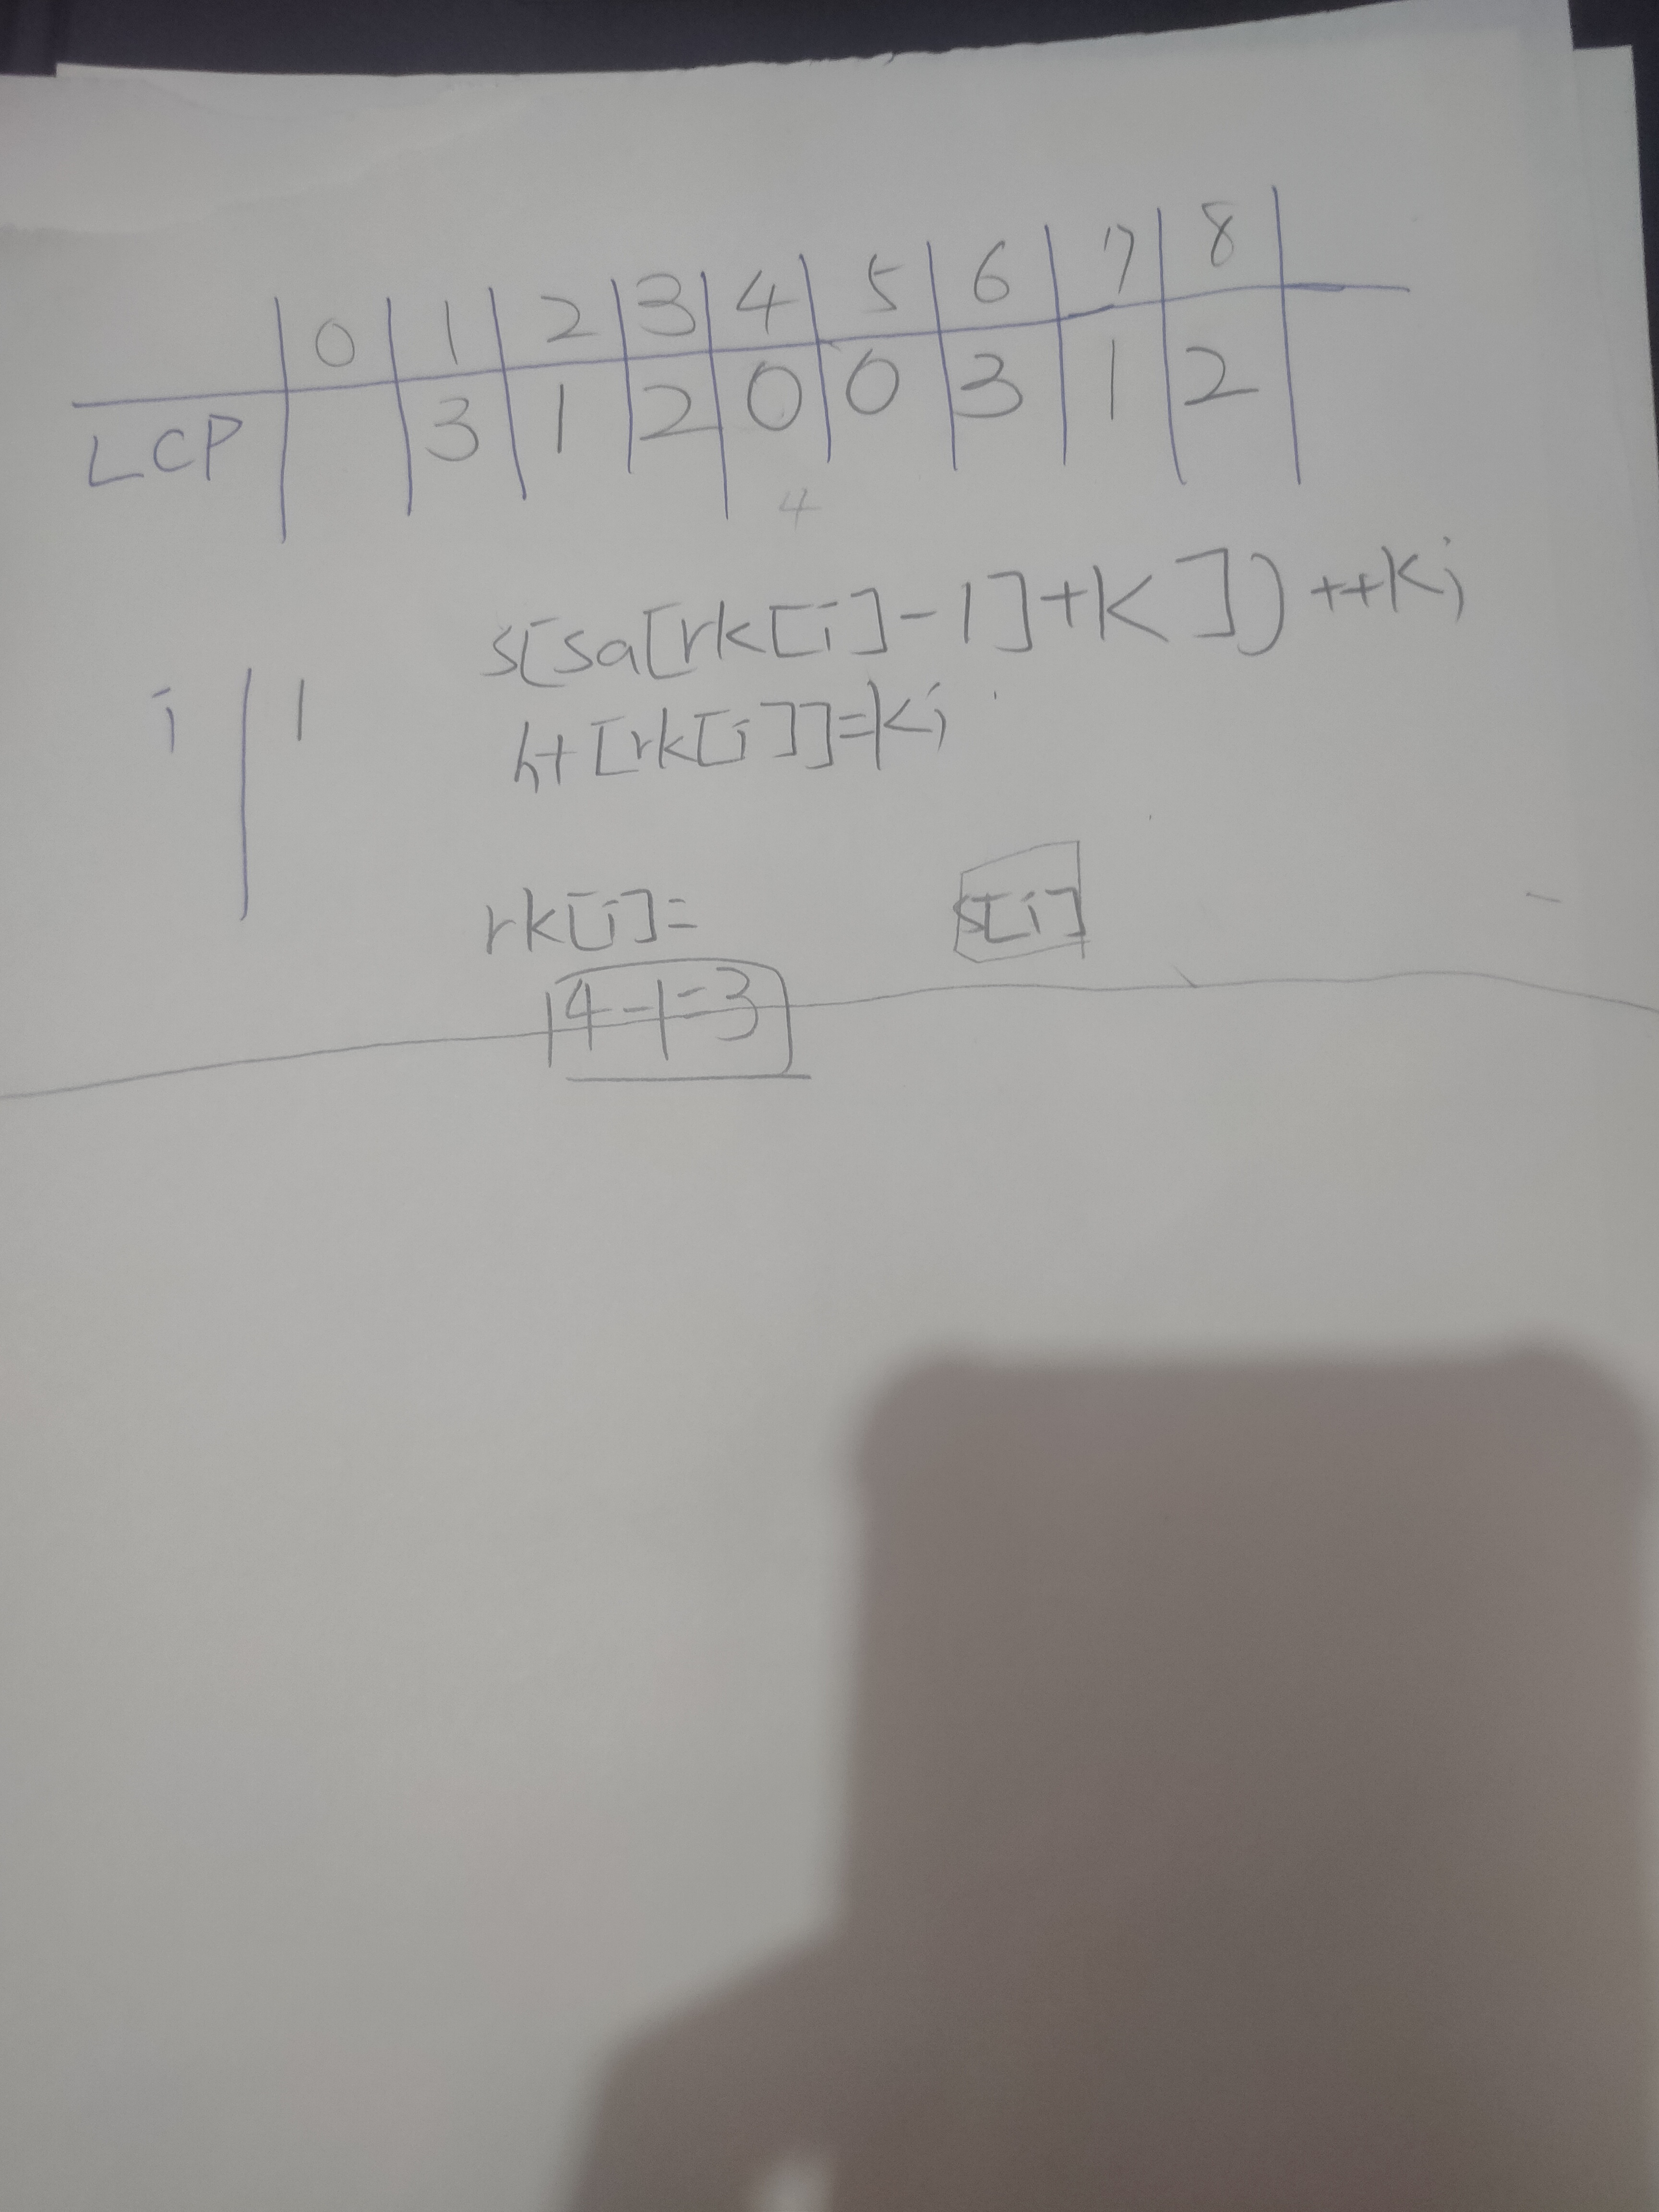 0 1 2 3 4 5 6 7 8
LCP 3 1 2 0 0 3 1 2
4
s[sa[rk[i]-1]+k]) ++k;
i 1
ht[rk[i]]=k;
rk[i]= s[i]
4-1=3